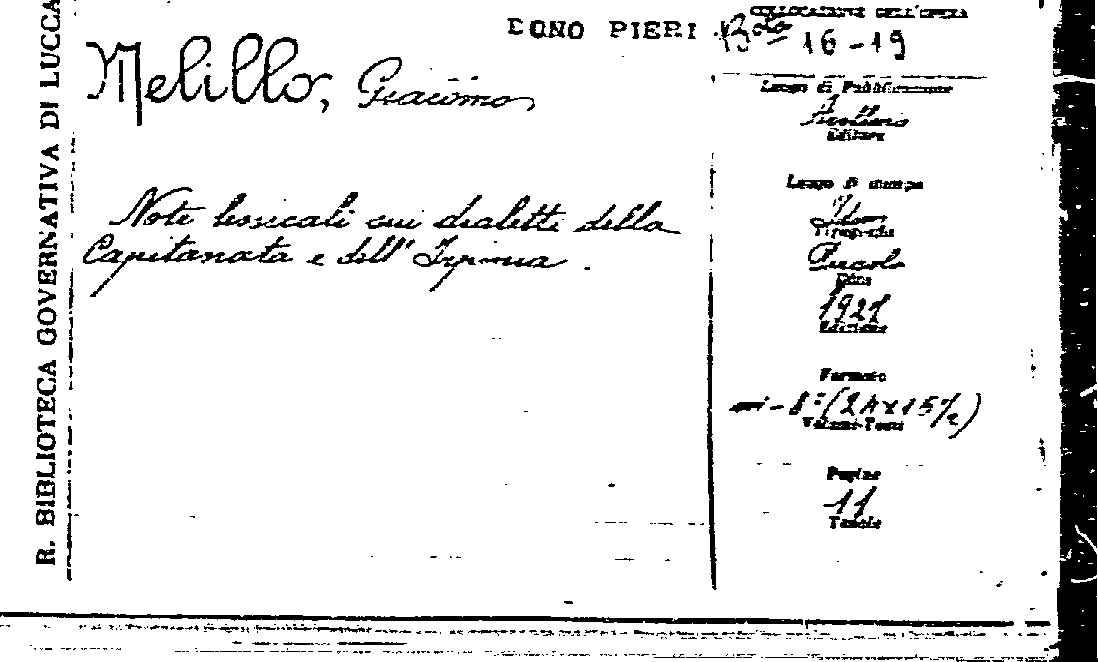 R. BIBLIOTECA GOVERNATIVA DI LUCCA
DONO PIERI
COLLOCAZIONE DELL'OPERA
16-19
Melillo, Giacomo
Note lessicali sui dialetti della
Capitanata e dell'Irpinia.
Luogo di Pubblicazione
Avellino
Editore
Luogo di stampa
Idem
Tipografia
Pergola
Data
1921
Edizione
Formato
8° (24x15½)
Volumi-Tomi
Pagine
11
Tavole